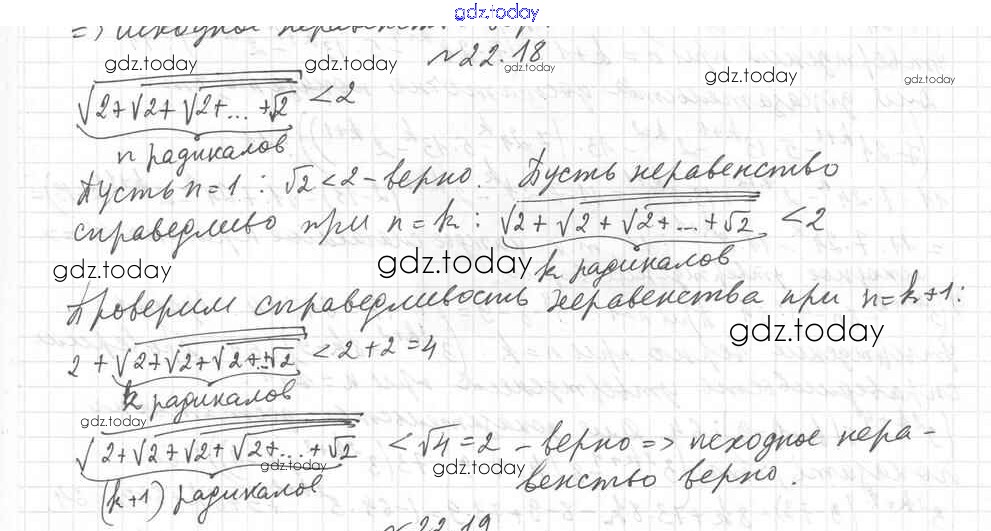 gdz.today
=> исходное неравенст
№22.18
gdz.today gdz.today gdz.today gdz.today gdz.today
√(2+√(2+√(2+...+√2))) < 2
n радикалов
Пусть n=1: √2 < 2 – верно. Пусть неравенство
справедливо при n = k: √(2+√(2+√(2+...+√2))) < 2
gdz.today gdz.today k радикалов
Проверим справедливость неравенства при n=k+1:
gdz.today
2 + √(2+√(2+√(2+...+√2))) < 2+2 = 4
k радикалов
gdz.today
√(2+√(2+√(2+√(2+...+√2)))) < √4 = 2 – верно => исходное нера-
gdz.today gdz.today
(k+1) радикалов венство верно.
№22.19